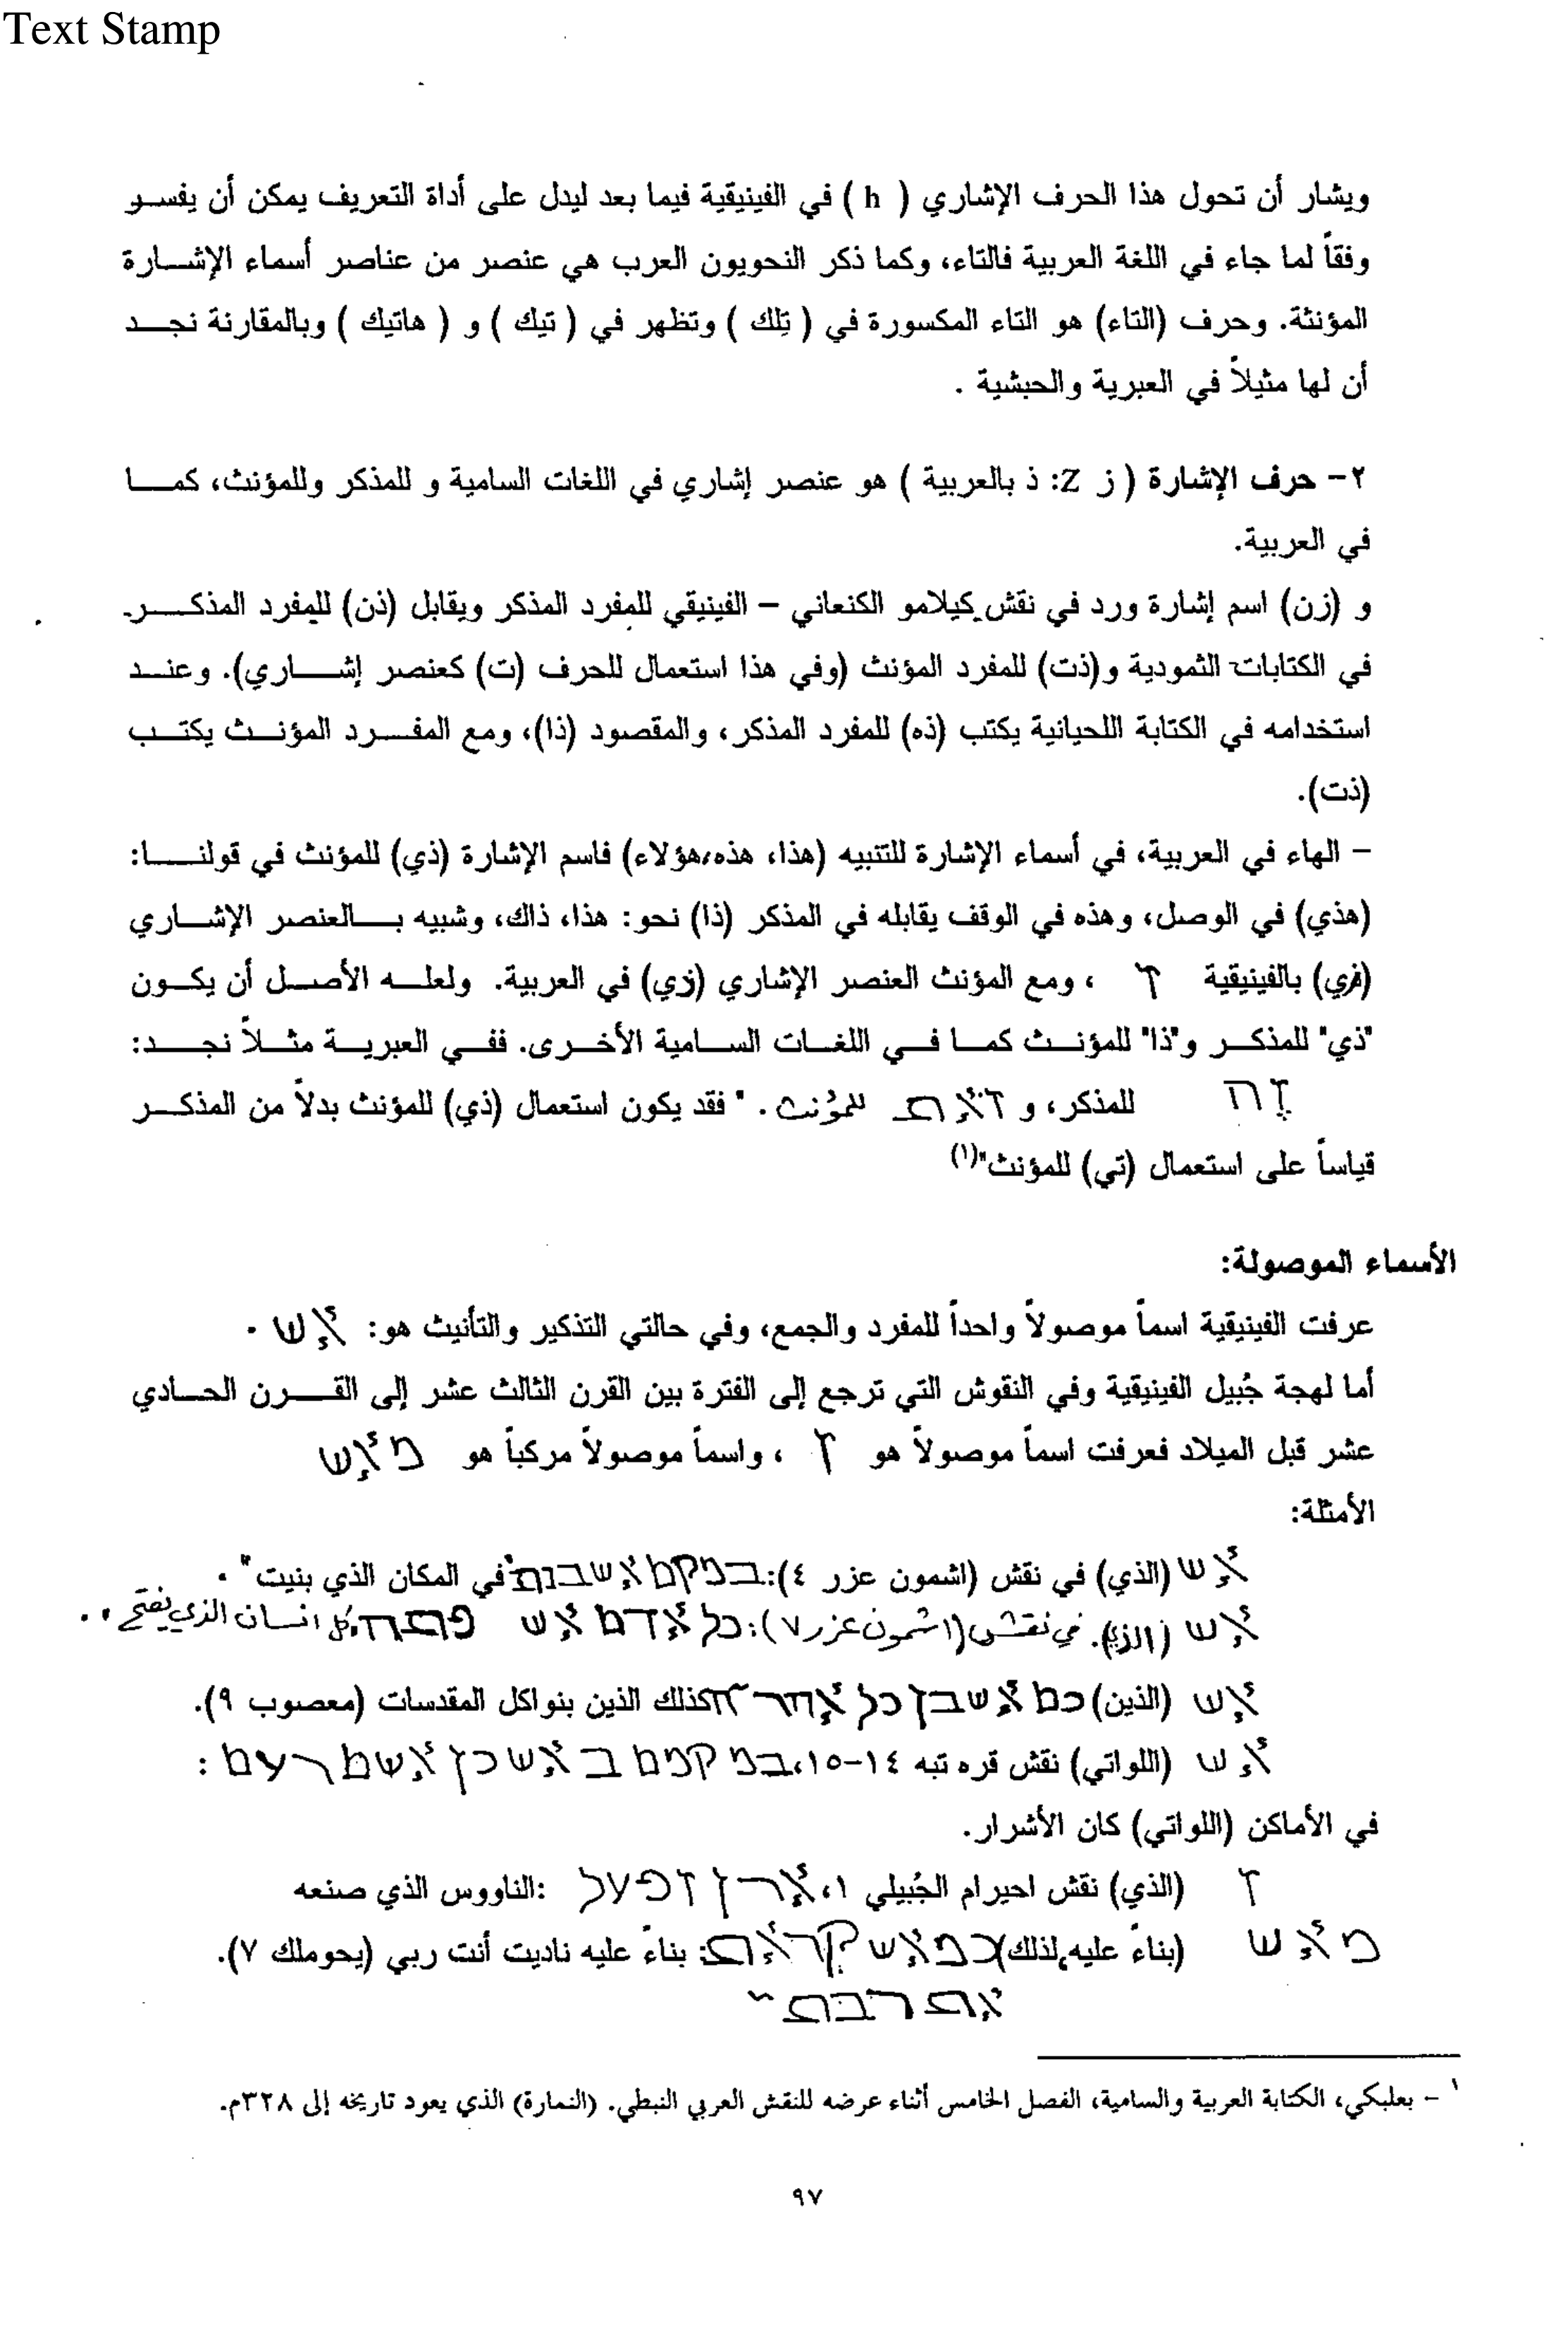 Text Stamp
ويشار أن تحول هذا الحرف الإشاري ( h ) في الفينيقية فيما بعد ليدل على أداة التعريف يمكن أن يفسـو
وفقاً لما جاء في اللغة العربية فالتاء، وكما ذكر النحويون العرب هي عنصر من عناصر أسماء الإشــارة
المؤنثة. وحرف (التاء) هو التاء المكسورة في ( تِلك ) وتظهر في ( تيك ) و ( هاتيك ) وبالمقارنة نجــد
أن لها مثيلاً في العبرية والحبشية .
٢- حرف الإشارة ( ز Z: ذ بالعربية ) هو عنصر إشاري في اللغات السامية و للمذكر وللمؤنث، كمــا
في العربية.
و (زن) اسم إشارة ورد في نقش كيلامو الكنعاني – الفينيقي للمفرد المذكر ويقابل (ذن) للمفرد المذكــر
في الكتابات الثمودية و(ذت) للمفرد المؤنث (وفي هذا استعمال للحرف (ت) كعنصر إشــاري). وعنــد
استخدامه في الكتابة اللحيانية يكتب (ذه) للمفرد المذكر، والمقصود (ذا)، ومع المفــرد المؤنــث يكتــب
(ذت).
– الهاء في العربية، في أسماء الإشارة للتنبيه (هذا، هذه،هؤلاء) فاسم الإشارة (ذي) للمؤنث في قولنــا:
(هذي) في الوصل، وهذه في الوقف يقابله في المذكر (ذا) نحو: هذا، ذاك، وشبيه بــالعنصر الإشــاري
بالفينيقية ז ، ومع المؤنث العنصر الإشاري في العربية. ولعلــه الأصــل أن يكــون
"ذي" للمذكــر و"ذا" للمؤنــث كمــا فــي اللغــات الســامية الأخــرى. ففــي العبريــة مثــلاً نجــد:
זה للمذكر، و זאת للمؤنث . " فقد يكون استعمال (ذي) للمؤنث بدلاً من المذكــر
قياساً على استعمال (تي) للمؤنث"(١)
الأسماء الموصولة:
عرفت الفينيقية اسماً موصولاً واحداً للمفرد والجمع، وفي حالتي التذكير والتأنيث هو: אש .
أما لهجة جُبيل الفينيقية وفي النقوش التي ترجع إلى الفترة بين القرن الثالث عشر إلى القــرن الحــادي
عشر قبل الميلاد فعرفت اسماً موصولاً هو ז ، واسماً موصولاً مركباً هو מאש
الأمثلة:
אש (الذي) في نقش (اشمون عزر ٤): במקם אש בנת في المكان الذي بنيت" .
אש (الذي). في نقش (اشمون عزر ٧): כל אדם אש פתח كل انسان الذي يفتح ..
אש (الذين) כם אש בן כל אחר كذلك الذين بنواكل المقدسات (معصوب ٩).
אש (اللواتي) نقش قره تبه ١٤-١٥، במקמם ב אש כן אשם רעם :
في الأماكن (اللواتي) كان الأشرار.
ז (الذي) نقش احيرام الجُبيلي ١، ארן זפעל :الناووس الذي صنعه
מאש (بناءً عليه،لذلك) כמאש קראת: بناءً عليه ناديت أنت ربي (يحوملك ٧).
את רבתי
١ – بعلبكي، الكتابة العربية والسامية، الفصل الخامس أثناء عرضه للنقش العربي النبطي. (النمارة) الذي يعود تاريخه إلى ٣٢٨م.
٩٧